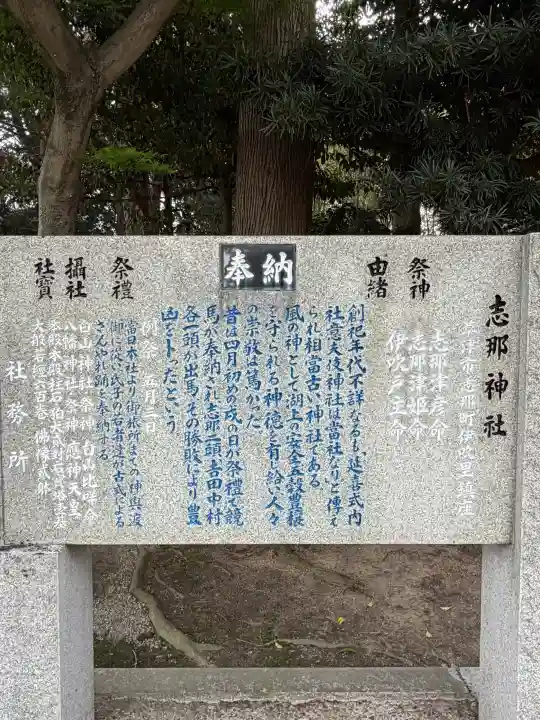 奉納
志那神社
草津市志那町伊吹里鎮座
祭神
志那津彦命
志那津姫命
伊吹戸主命
由緒
創祀年代不詳なるも、延喜式内
社意夫伎神社は當社なりと傳へ
られ相當古い神社である
風の神として湖上の安全五穀豊穣
を守られる神徳を有し給い人々
の崇敬も篤かった。
昔は四月初めの戌の日が祭禮で競
馬が奉納され志那二頭、吉田中村
各一頭が出馬、その勝敗により豊
凶をトったという
祭禮
例祭 五月三日
當日本社より御旅所までの神輿渡
御に従い氏子の若者達が古式による
さんやれ踊を奉納する
攝社
白山神社祭神 白山比咩命
八幡神社祭神 應神天皇
社寳
大般若經六百巻
佛像
社務所